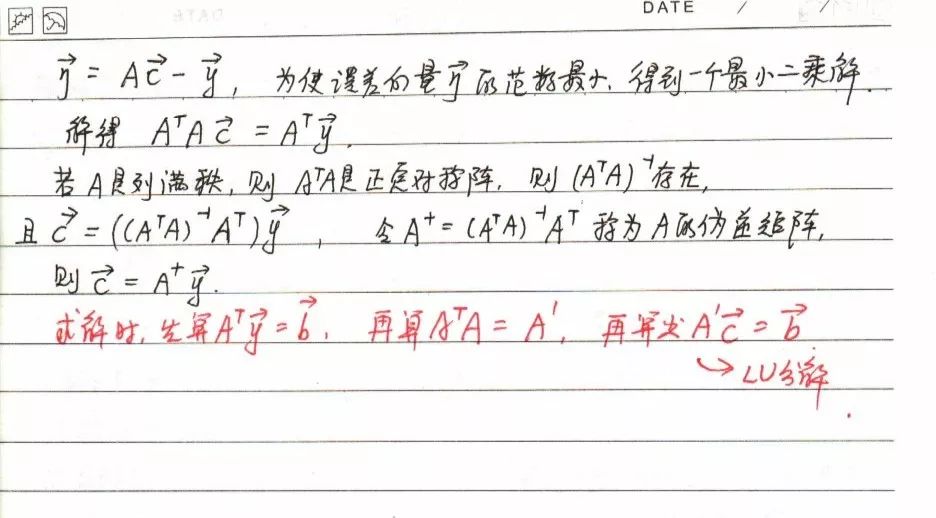 DATE / /
η⃗ = Ac⃗ - y⃗, 为使误差向量η⃗的范数最小, 得到一个最小二乘解.
解得 AᵀAc⃗ = Aᵀy⃗.
若A是列满秩, 则AᵀA是正定对称阵, 则(AᵀA)⁻¹存在,
且c⃗ = ((AᵀA)⁻¹Aᵀ)y⃗, 令A⁺ = (AᵀA)⁻¹Aᵀ称为A的伪逆矩阵,
则c⃗ = A⁺y⃗.
求解时, 先算Aᵀy⃗ = b⃗, 再算AᵀA = A′, 再算出A′c⃗ = b⃗.
↪ LU分解.